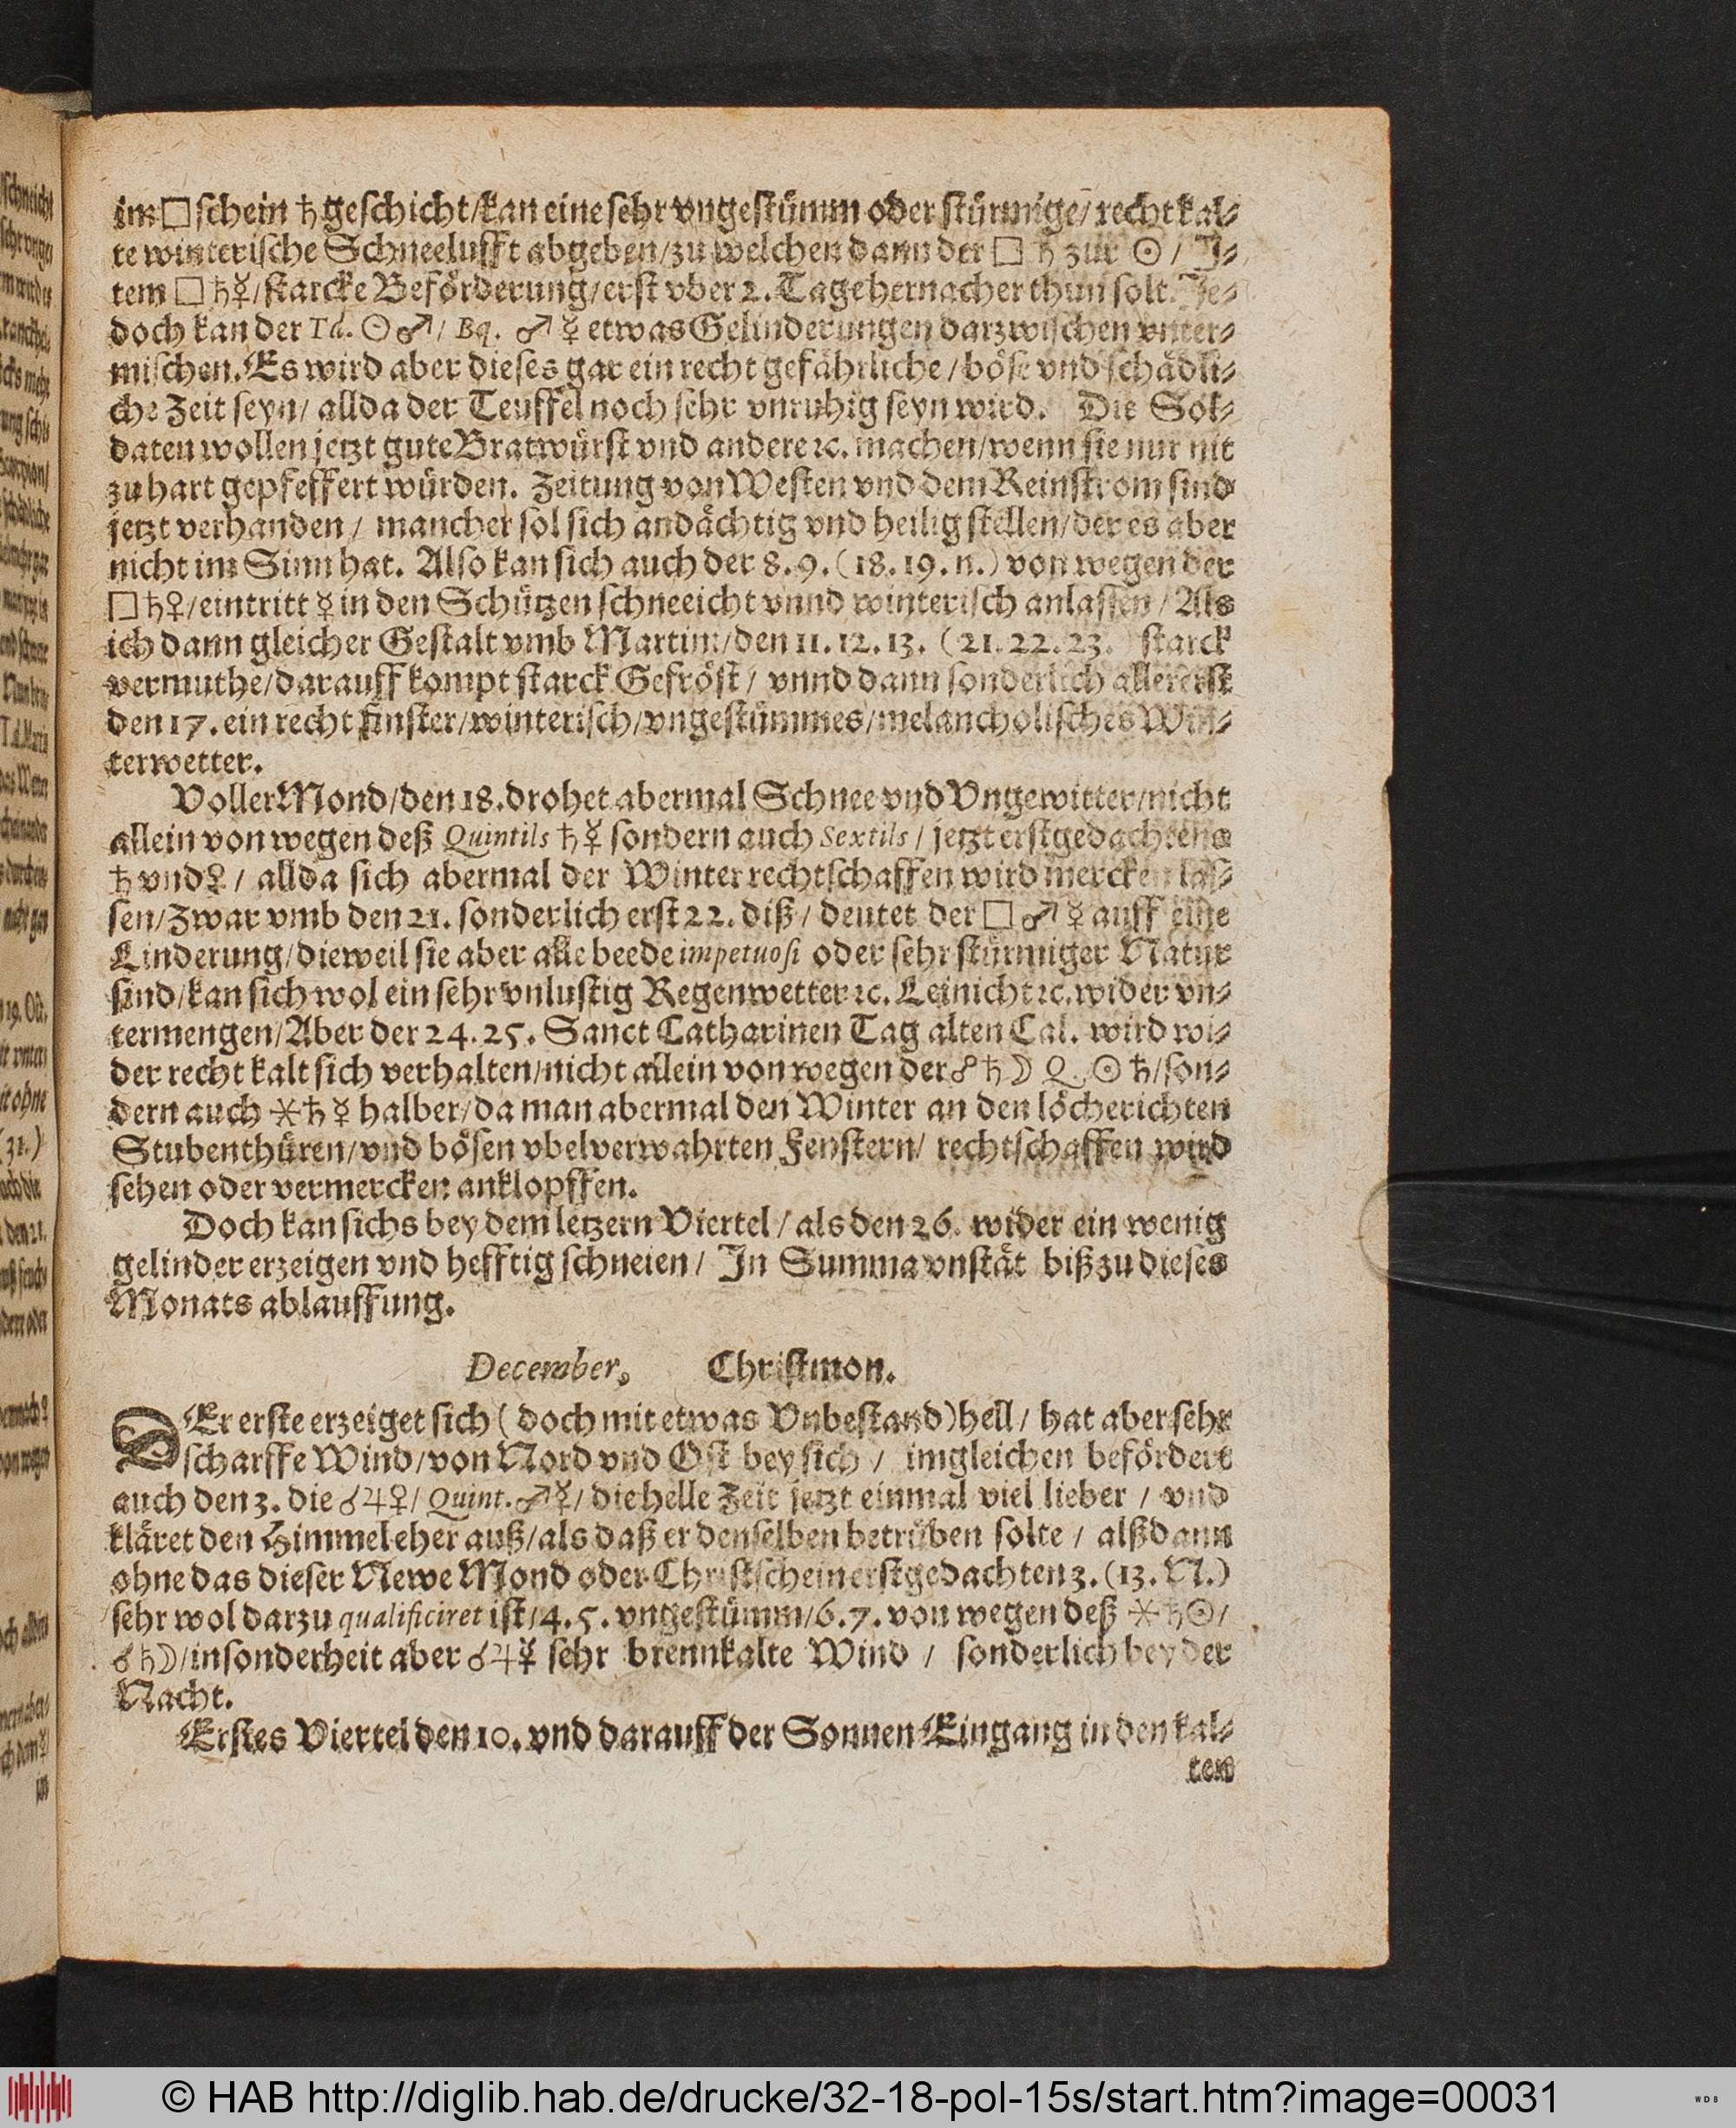 im□schein ♄ geschicht/kan eine sehr vngestümm oder stürmige/ recht kal-
te winterische Schneelufft abgeben/zu welchen dann der □ ♄ zur ☉ / J-
tem □ ♄☿/starcke Beförderung/erst vber 2. Tage hernacher thun solt. Je-
doch kan der Td. ☉♂/ Bq. ♂ ☿ etwas Gelinderungen darzwischen vnter-
mischen. Es wird aber dieses gar ein recht gefährliche/böse vnd schädli-
che Zeit seyn/ allda der Teuffel noch sehr vnruhig seyn wird. Die Sol-
daten wollen jetzt gute Bratwürst vnd andere ꝛc. machen/wenn sie nur nit
zu hart gepfeffert würden. Zeitung von Westen vnd dem Reinstrom sind
jetzt verhanden / mancher sol sich andächtig vnd heilig stellen/der es aber
nicht im Sinn hat. Also kan sich auch der 8. 9. (18. 19. n.) von wegen der
□♄♀/eintritt ☿ in den Schützen schneeicht vnnd winterisch anlassen/ Als
ich dann gleicher Gestalt vmb Martini/den 11. 12. 13. (21. 22. 23. starck
vermuthe/darauff kompt starck Gefröst/ vnnd dann sonderlich allererst
den 17. ein recht finster/winterisch/vngestümmes/melancholisches Win-
terwetter.
Voller Mond/den 18. drohet abermal Schnee vnd Vngewitter/nicht
allein von wegen deß Quintils ♄☿ sondern auch Sextils / jetzt erstgedachtens
♄ vnd ☿ / allda sich abermal der Winter rechtschaffen wird mercken las-
sen/Zwar vmb den 21. sonderlich erst 22. diß/ deutet der □ ♂ ☿ auff eine
Linderung/dieweil sie aber alle beede impetuosi oder sehr stürmiger Natur
sind/kan sich wol ein sehr vnlustig Regenwetter ꝛc. Leinicht ꝛc. wider vn-
termengen/Aber der 24. 25. Sanct Catharinen Tag alten Cal. wird wi-
der recht kalt sich verhalten/nicht allein von wegen der ☍ ♄☽ Q. ☉ ♄/son-
dern auch ⚹♄☿ halber/da man abermal den Winter an den löcherichten
Stubenthüren/vnd bösen vbelverwahrten Fenstern/ rechtschaffen wird
sehen oder vermercken anklopffen.
Doch kan sichs bey dem letzern Viertel/ als den 26. wider ein wenig
gelinder erzeigen vnd hefftig schneien/ Jn Summa vnstät biß zu dieses
Monats ablauffung.
December. Christmon.
DEr erste erzeiget sich (doch mit etwas Vnbestand) hell/ hat aber sehr
scharffe Wind/von Nord vnd Ost bey sich / imgleichen befördert
auch den 3. die ☌♃♀/ Quint. ♂☿/ die helle Zeit jetzt einmal viel lieber / vnd
kläret den Himmel eher auß/als daß er denselben betrüben solte / alßdann
ohne das dieser Newe Mond oder Christschein erstgedachten 3. (13. N.)
sehr wol darzu qualificiret ist/4. 5. vngestümm/6. 7. von wegen deß ⚹♄☉/
☌♄☽/insonderheit aber ☌♃☿ sehr brennkalte Wind / sonderlich bey der
Nacht.
Erstes Viertel den 10. vnd darauff der Sonnen Eingang in den kal-
ten
© HAB http://diglib.hab.de/drucke/32-18-pol-15s/start.htm?image=00031